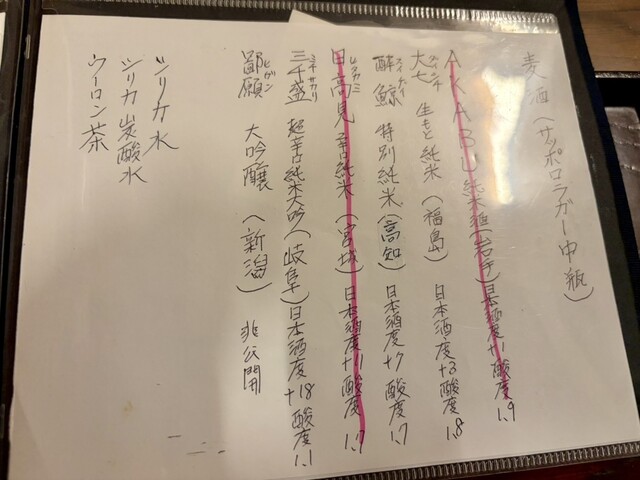 麦酒(サッポロラガー中瓶)
AKABU 純米酒(岩手)日本酒度+1 酸度1.9
大七 生もと純米(福島) 日本酒度+3 酸度1.8
酔鯨 特別純米(高知) 日本酒度+7 酸度1.7
ヒタカミ
日高見 辛口純米(宮城) 日本酒度+11 酸度1.7
ミチサカリ
三千盛 超辛口純米大吟(岐阜)日本酒度+18 酸度1.1
ヒガン
鄙願 大吟醸 (新潟) 非公開
シリカ水
シリカ炭酸水
ウーロン茶